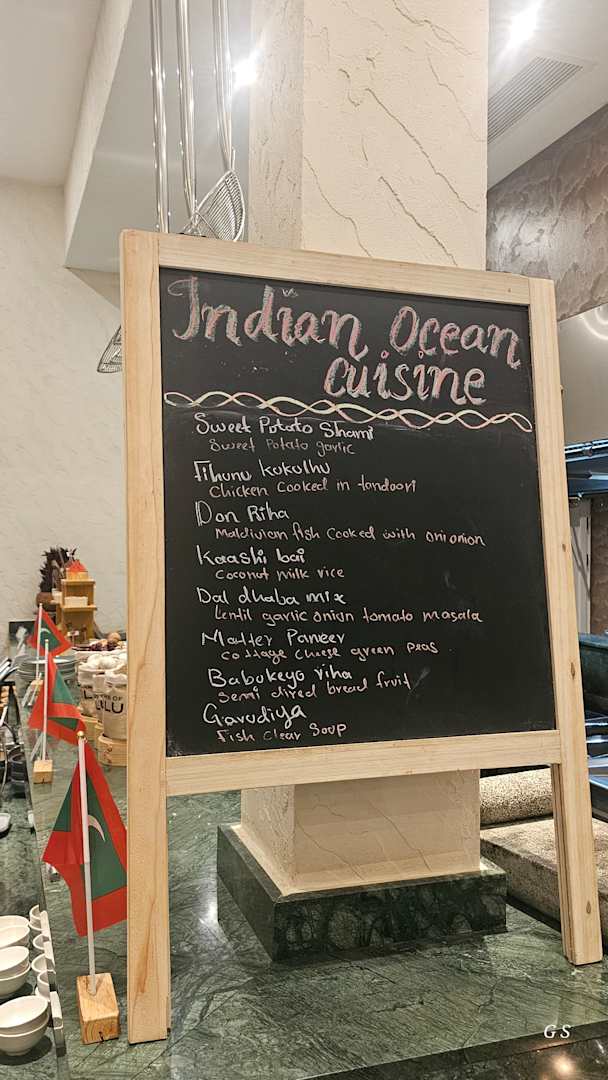 Indian Ocean
cuisine
Sweet Potato Shami
Sweet Potato garlic
Fihunu kukulhu
Chicken Cooked in tandoori
Don Riha
Maldivian fish Cooked with oni onion
Kaashi bai
Coconut milk rice
Dal dhaba mix
Lentil garlic onion tomato masala
Matter Paneer
Cottage cheese green peas
Babukeyo riha
Semi dired bread fruit
Garudiya
Fish clear Soup
LULU
G S